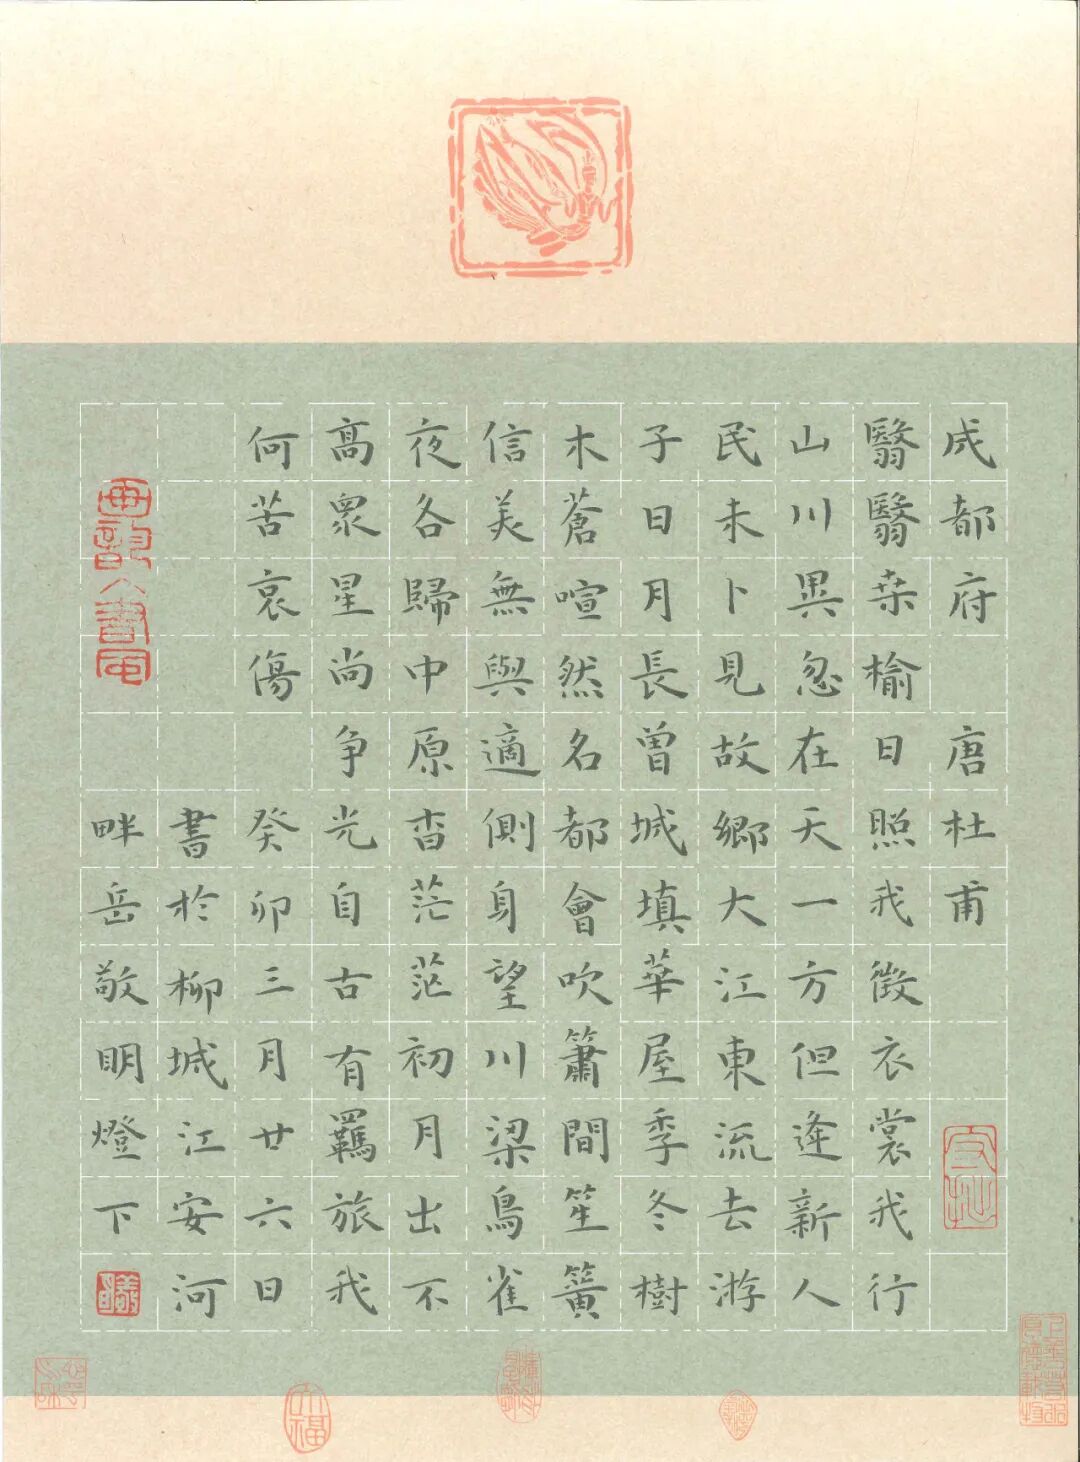 成都府 唐杜甫
翳翳桒榆日照我徴衣裳我行
山川異忽在天一方但逢新人
民未卜見故鄉大江東流去游
子日月長曽城填華屋季冬樹
木蒼喧然名都會吹簫間笙簧
信美無與適側身望川梁鳥雀
夜各歸中原杳茫茫初月出不
髙衆星尚争光自古有羈旅我
何苦哀傷 癸卯三月廿六日
書於柳城江安河
畔岳敬明燈下